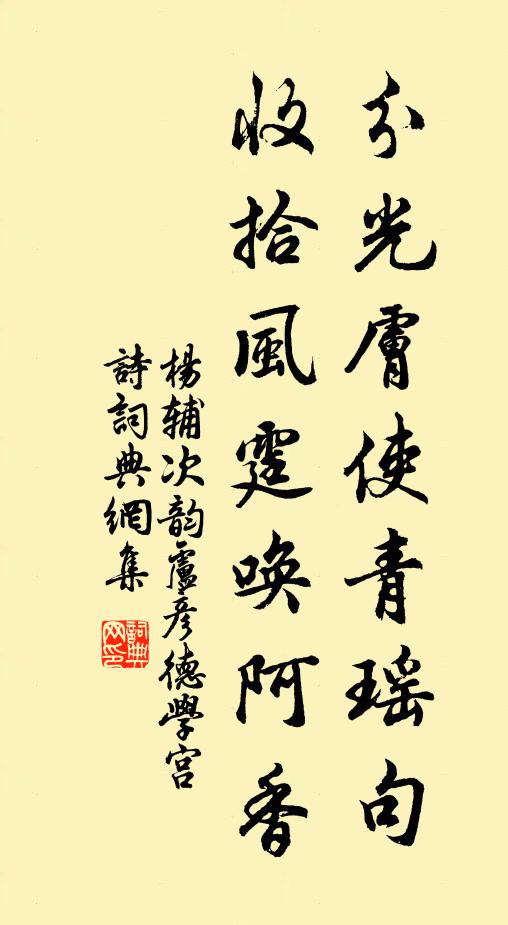 分光膚使青瑶句
收拾風霆唤阿香
楊輔次韵盧彦德學宫
詩詞典網集
詞典網印